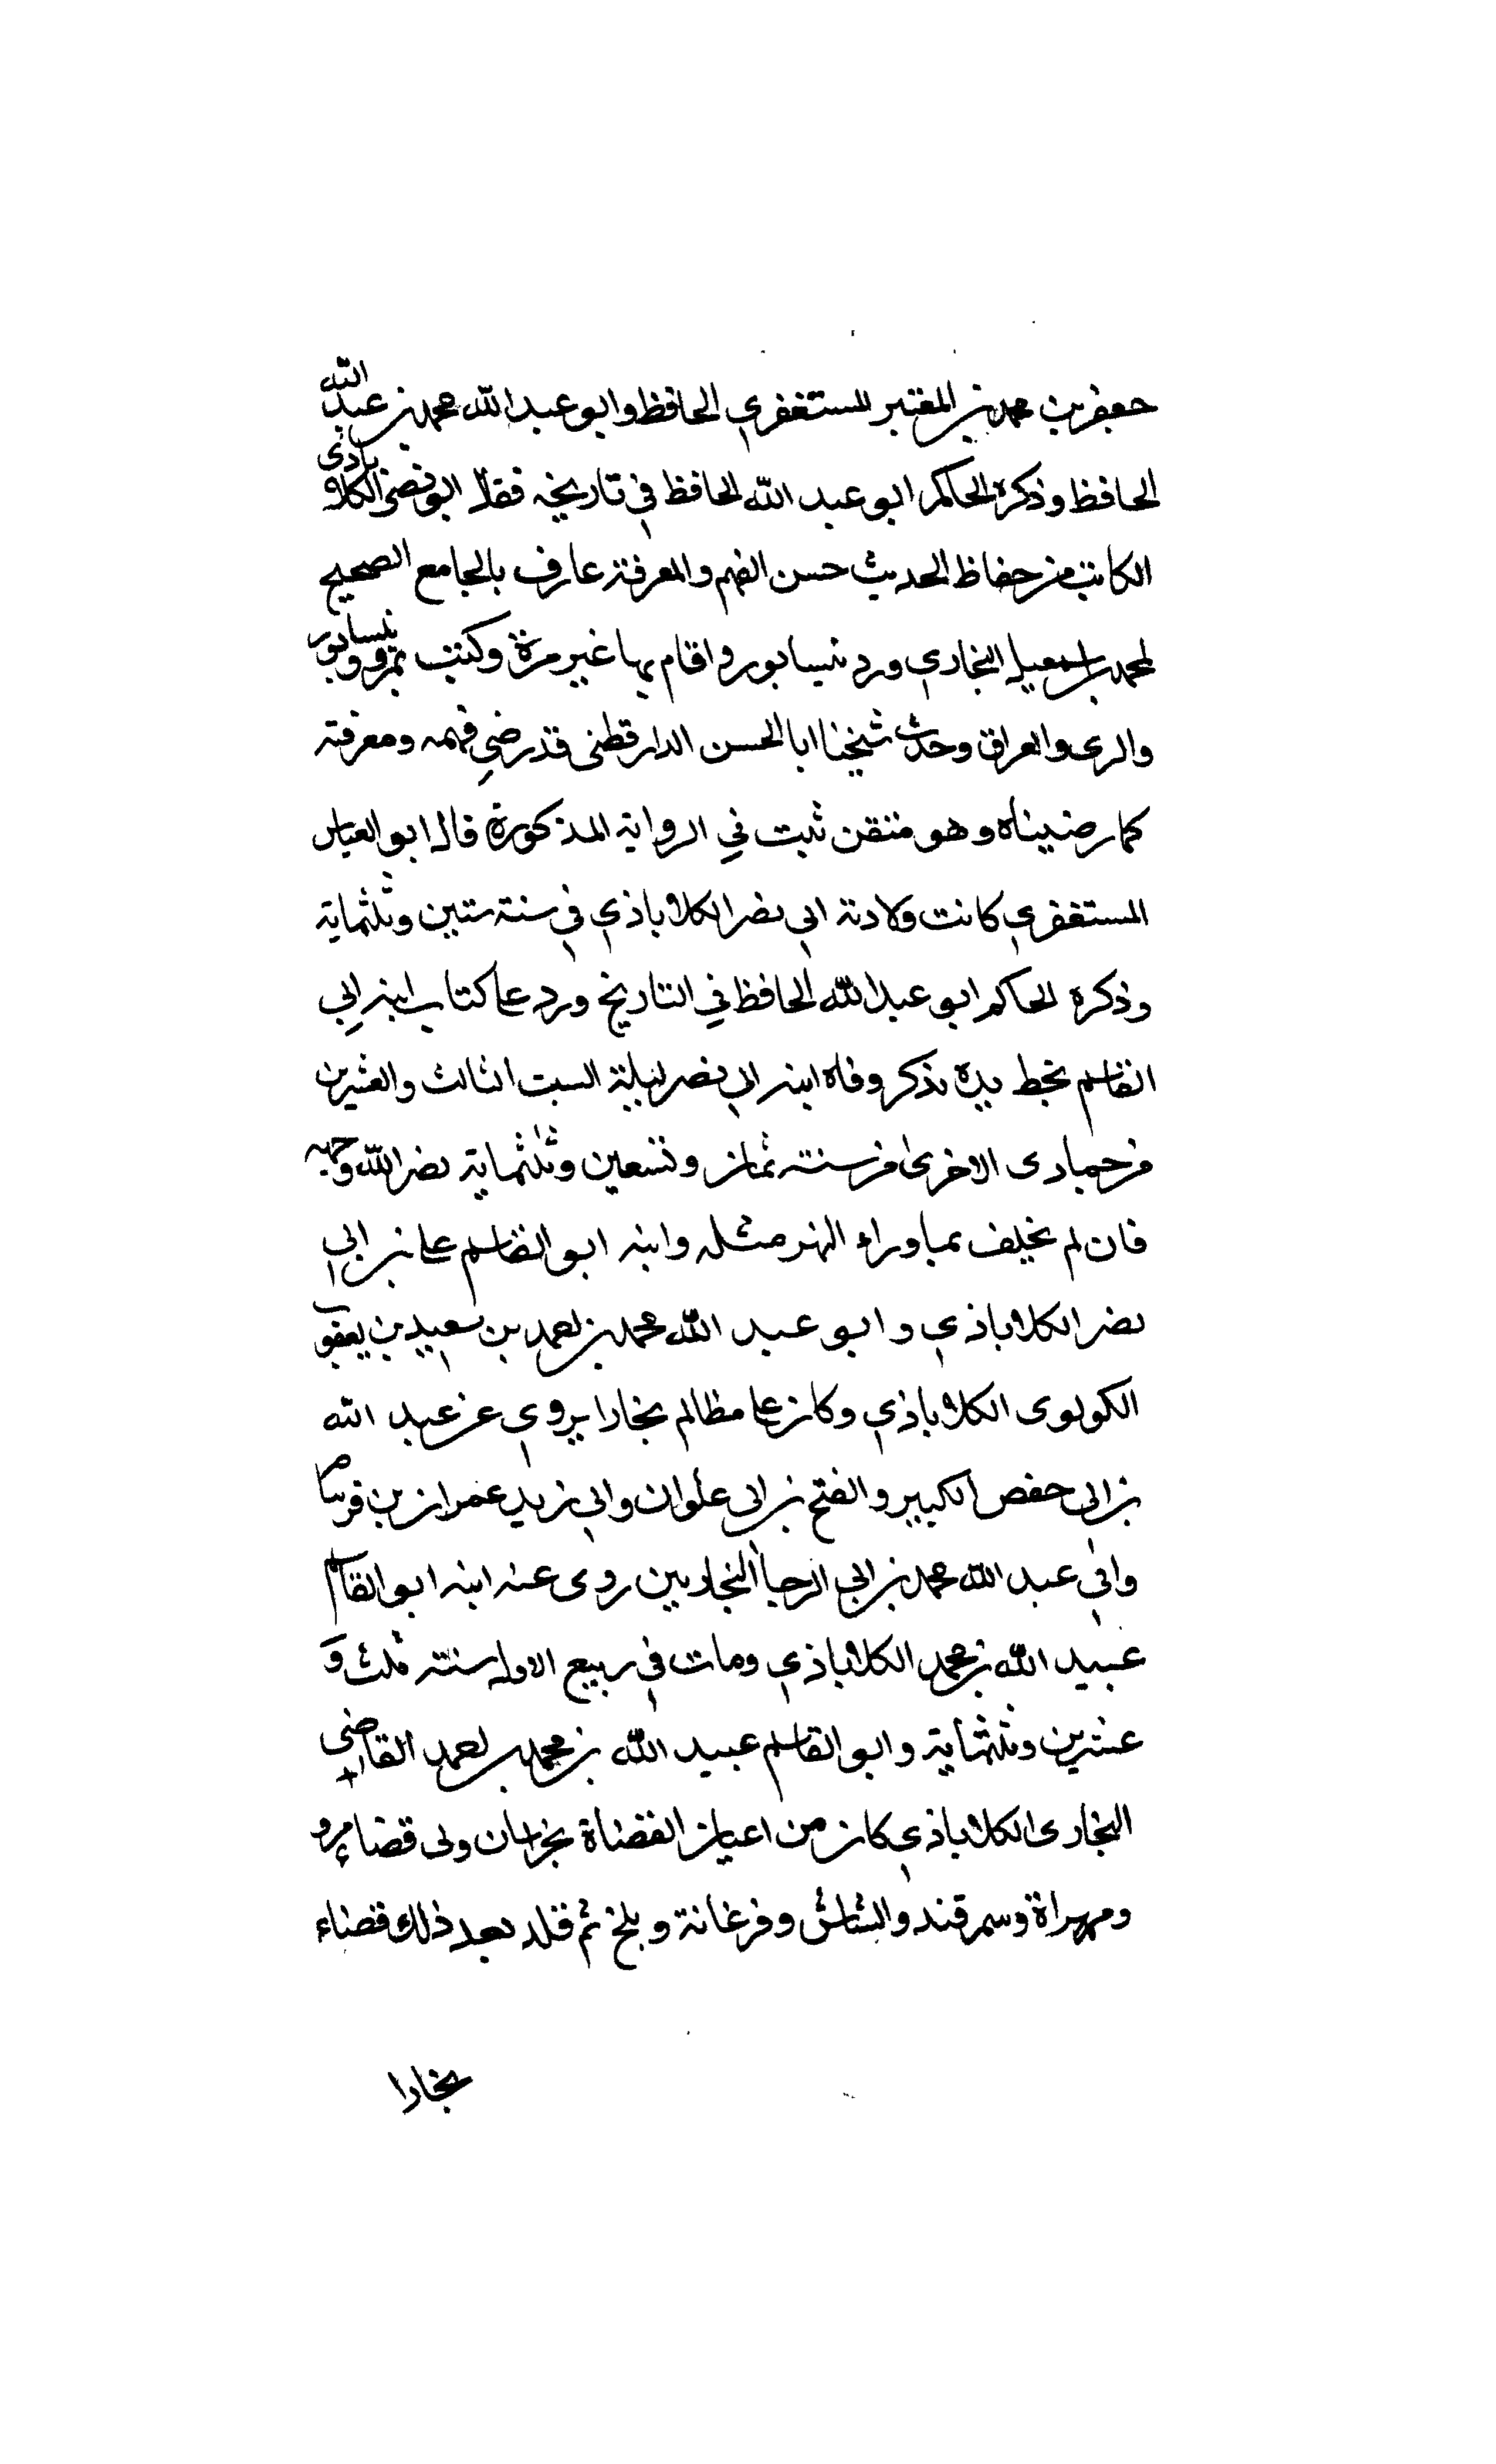 جعفر بن محمد بن المعتبر المستغفري الحافظ وابو عبد الله محمد بن عبد الله
الحافظ وذكره الحاكم ابو عبد الله الحافظ في تاريخه فقال ابو نصر الكلاباذى
الكاتب من حفاظ الحديث حسن الفهم والمعرفة عارف بالجامع الصحيح
لمحمد بن اسمعيل البخاري ورد نيسابور واقام بها غير مرة وكتب بمرو ونيسابور
والرى والعراق وحدث شيخنا ابا الحسن الدارقطنى قد رضي فهمه ومعرفته
كما رضيناه وهو متقن ثبت في الرواية المذكورة قال ابو العباس
المستغفري كانت ولادة ابي نصر الكلاباذي في سنة ستين وثلثماية
وذكره الحاكم ابو عبد الله الحافظ في التاريخ ورد على كتاب ابن ابي
القاسم بخط يده بذكر وفاه ابنه ابي نصر ليلة السبت الثالث والعشرين
من جمادى الاخرى من سنة ثمان وتسعين وثلثماية نضر الله وجهه
فان لم يخلف بماوراء النهر مثله وابنه ابو القاسم على بن ابي
نصر الكلاباذي وابو عبد الله محمد بن احمد بن سعيد بن يعقوب
الكولوى الكلاباذي وكان على مظالم بخارا يروي عن عبد الله
بن ابى حفص الكبير والفتح بن ابى علوان وابي زيد عمران بن
وابي عبد الله محمد بن ابي الرجا البخاريين روى عنه ابنه ابو القاسم
عبيد الله بن محمد الكلاباذي ومات في ربيع الاول سنة ثلث و
عشرين وثلثماية وابو القاسم عبيد الله بن محمد بن احمد القاضي
البخارى الكلاباذي كان من اعيان القضاة بخراسان ولى قضا مرو
وهراة وسمرقند والشاش وفرغانة وبلخ ثم قلد بعد ذلك قضاء
بخارا